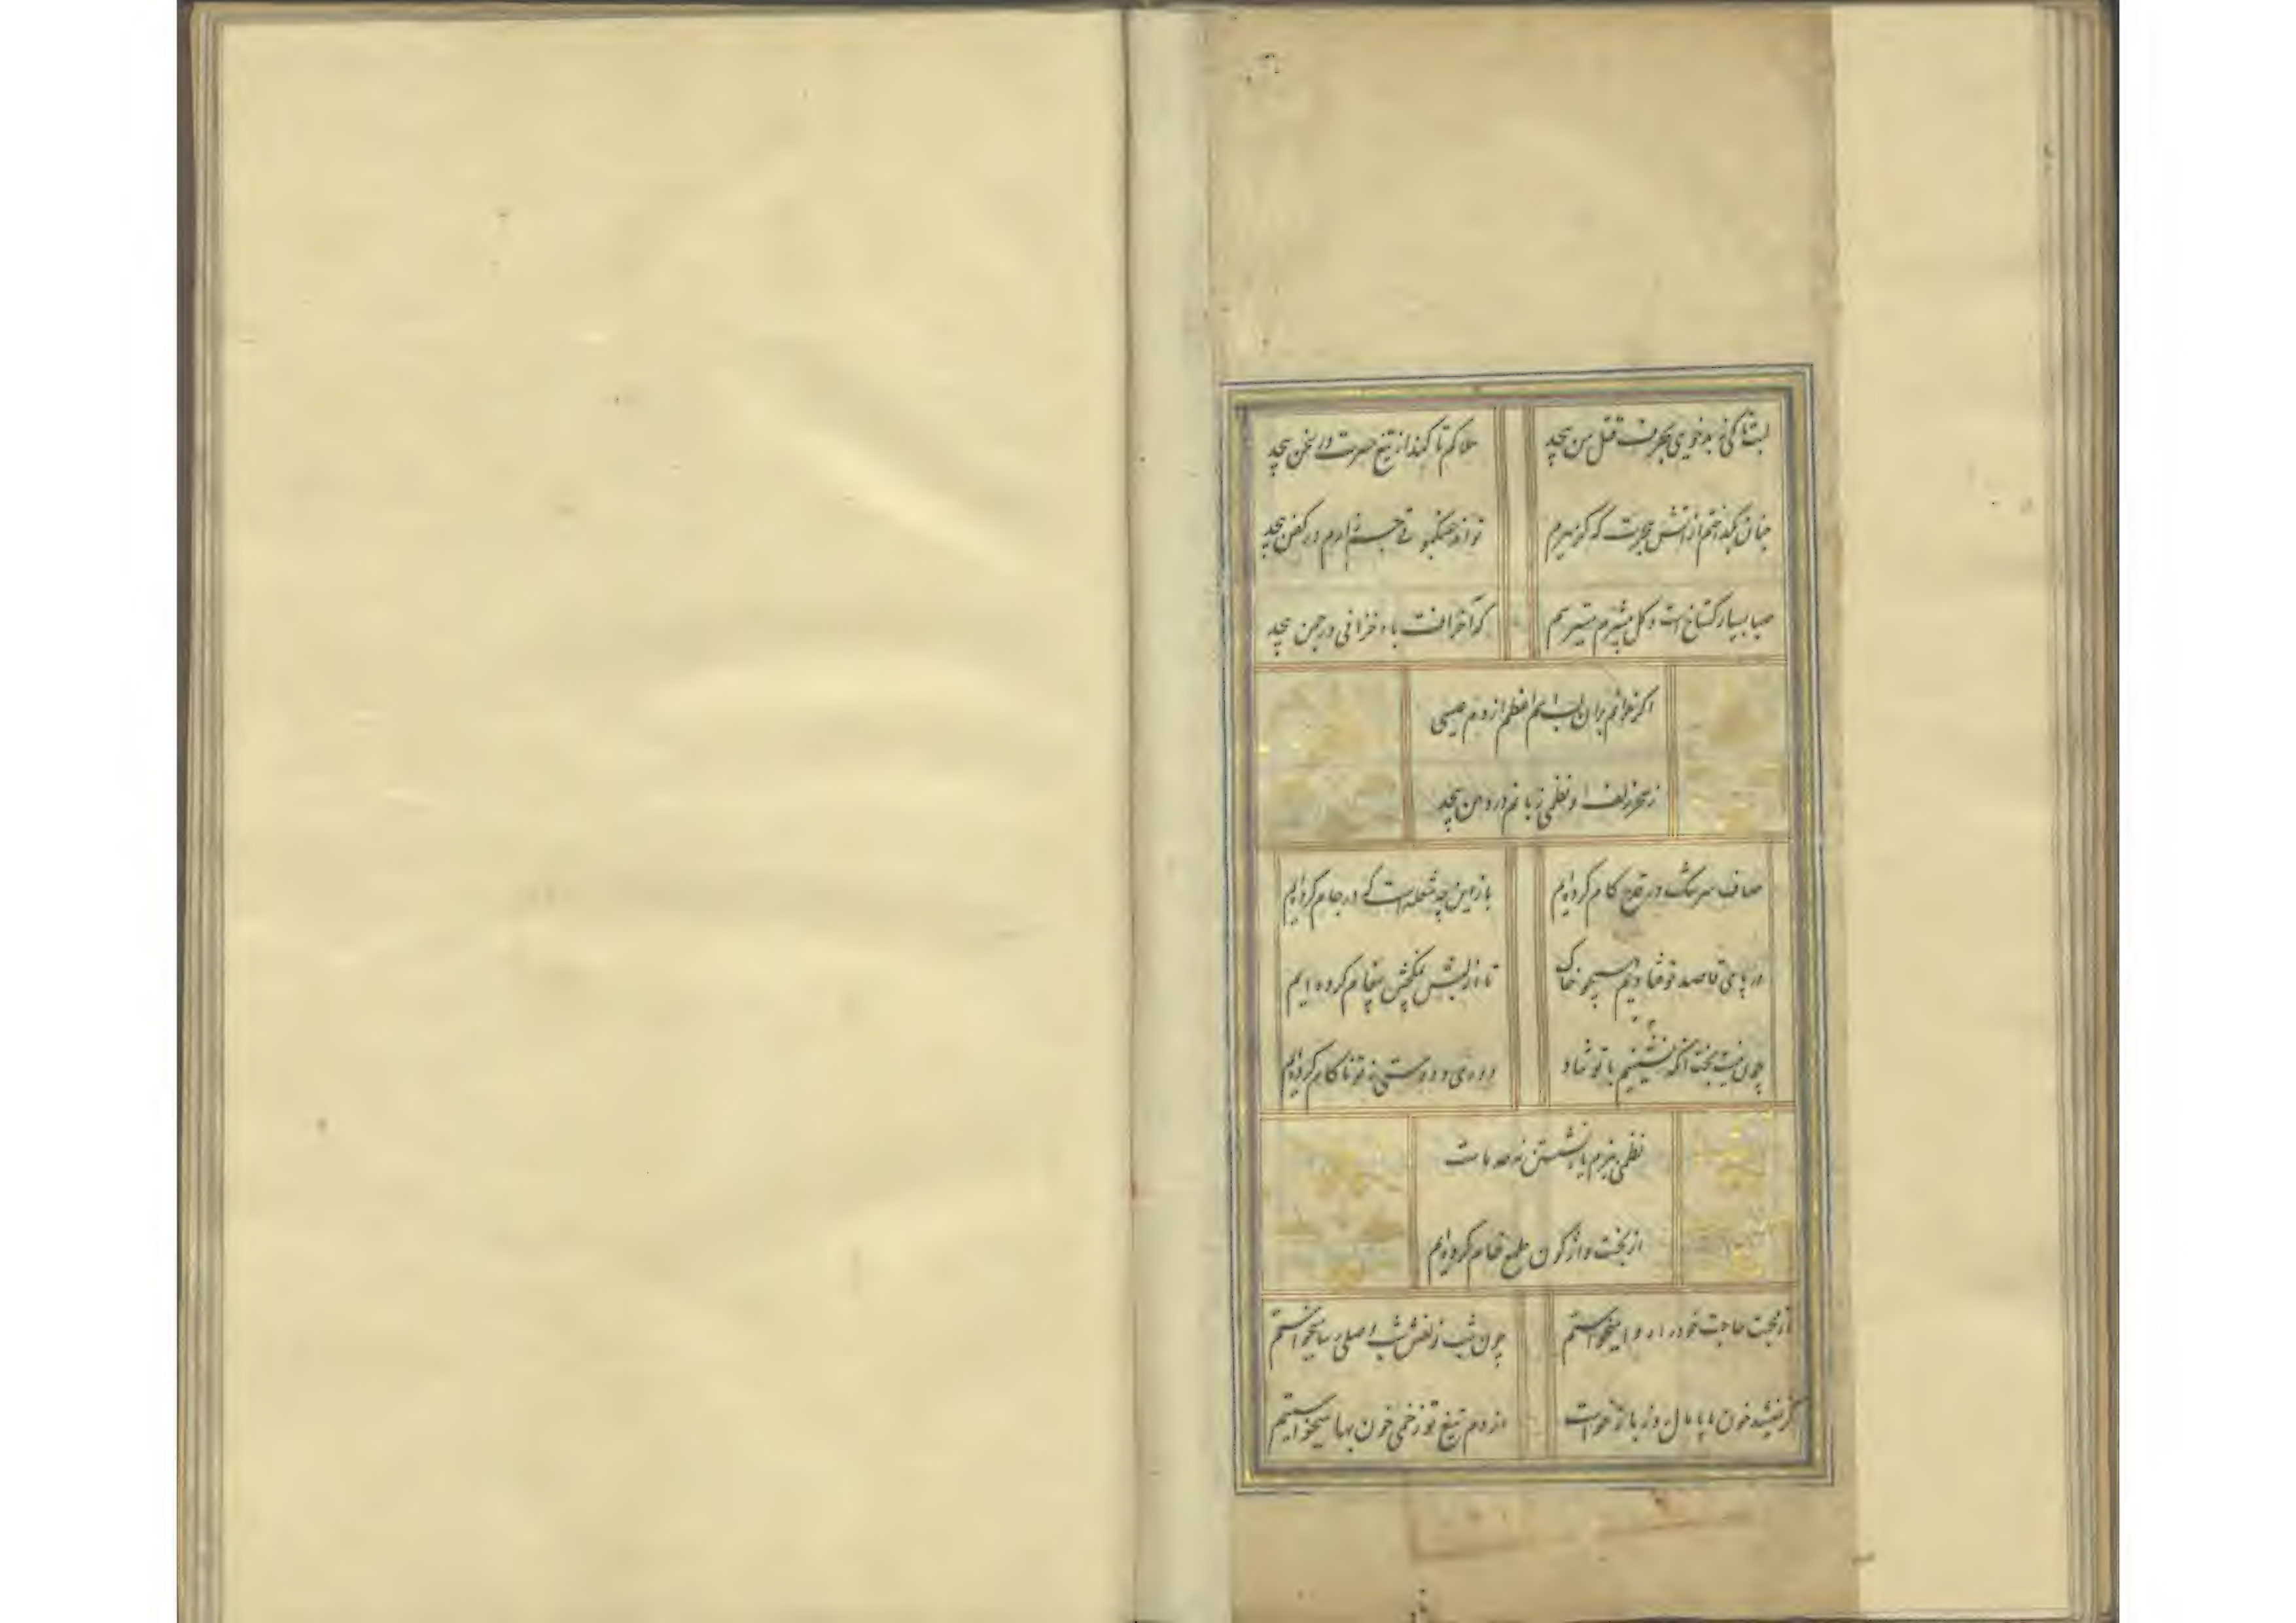 لبت تا کی ز بدخویی بحرف قتل من پیچد
هلاکم تا کند از تیغ حسرت در سخن پیچد
چنان بگداختم از آتش هجرت که گر میرم
تواند عنکبوتی جسم زارم در کفن پیچد
صبا بسیار گستاخست و گل بیشرم میترسم
که آخر آفت باد خزانی در چمن پیچد
اگر خوانم بران لب اسم اعظم از دم عیسی
ز سحر زلف او نظمی زبانم در دهن پیچد
صاف سرشک در قدح کام کرده‌ایم
باز این چه شعله است که در جام کرده‌ایم
در پای قاصد تو فتادیم همچو خاک
تا از لبش نمکچش پیغام کرده ایم
چون نیست بخت آنکه نشینیم با تو شاد
دوری و دوستی ز تو ناکام کرده‌ایم
نظمی ببزم یار نشستن نه حد ماست
از بخت واژگون طمع خام کرده‌ایم
از بخت حاجت خود را روا میخواستم
چون شب زلفش شب وصلی رسا میخواستم
گر نمیشد خون ما پامال روز بازخواست
از دم تیغ تو زخمی خونبها میخواستیم